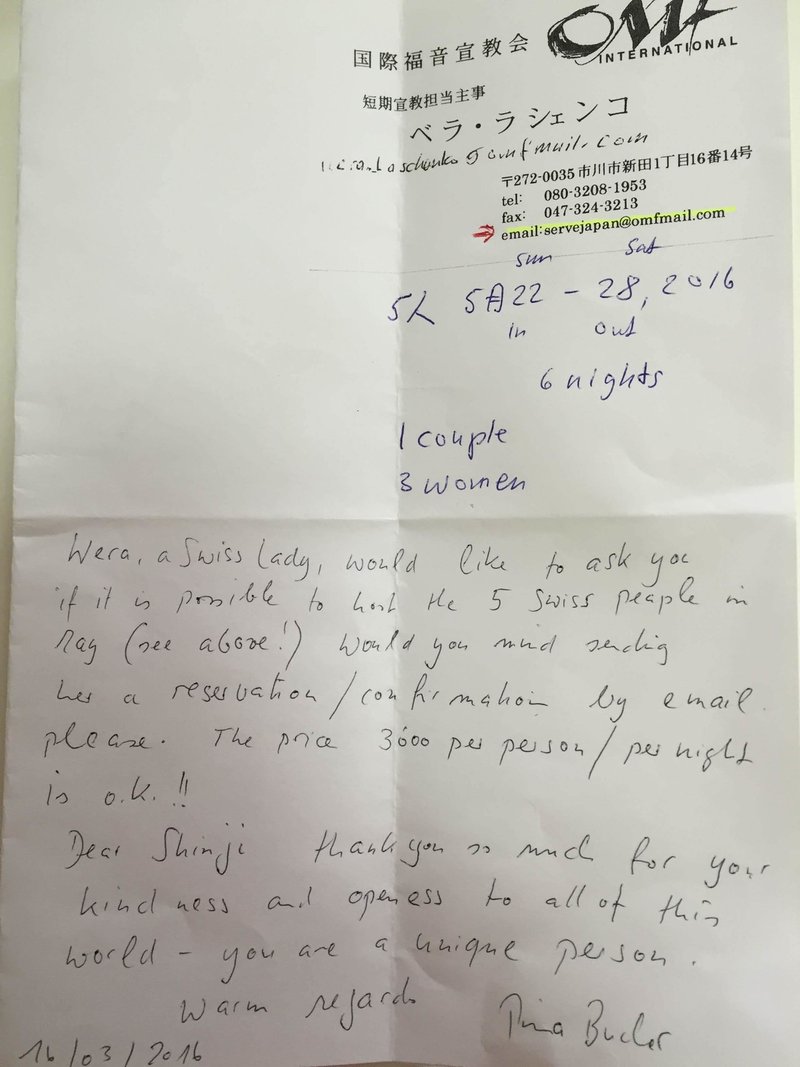 国際福音宣教会
OMF
INTERNATIONAL
短期宣教担当主事
ベラ・ラシェンコ
@omfmail.com
〒272-0035 市川市新田1丁目16番14号
tel: 080-3208-1953
fax: 047-324-3213
email:servejapan@omfmail.com
sun sat
5人 5月22 - 28, 2016
in out
6 nights
1 couple
3 women
Wera, a Swiss Lady, would like to ask you
if it is possible to host the 5 Swiss people in
May (see above!) Would you mind sending
her a reservation/confirmation by email
please. The price 3'600 per person/per night
is o.k.!!
Dear Shinji thank you so much for your
kindness and openess to all of this
world - you are a unique person.
Warm regards
16/03/2016